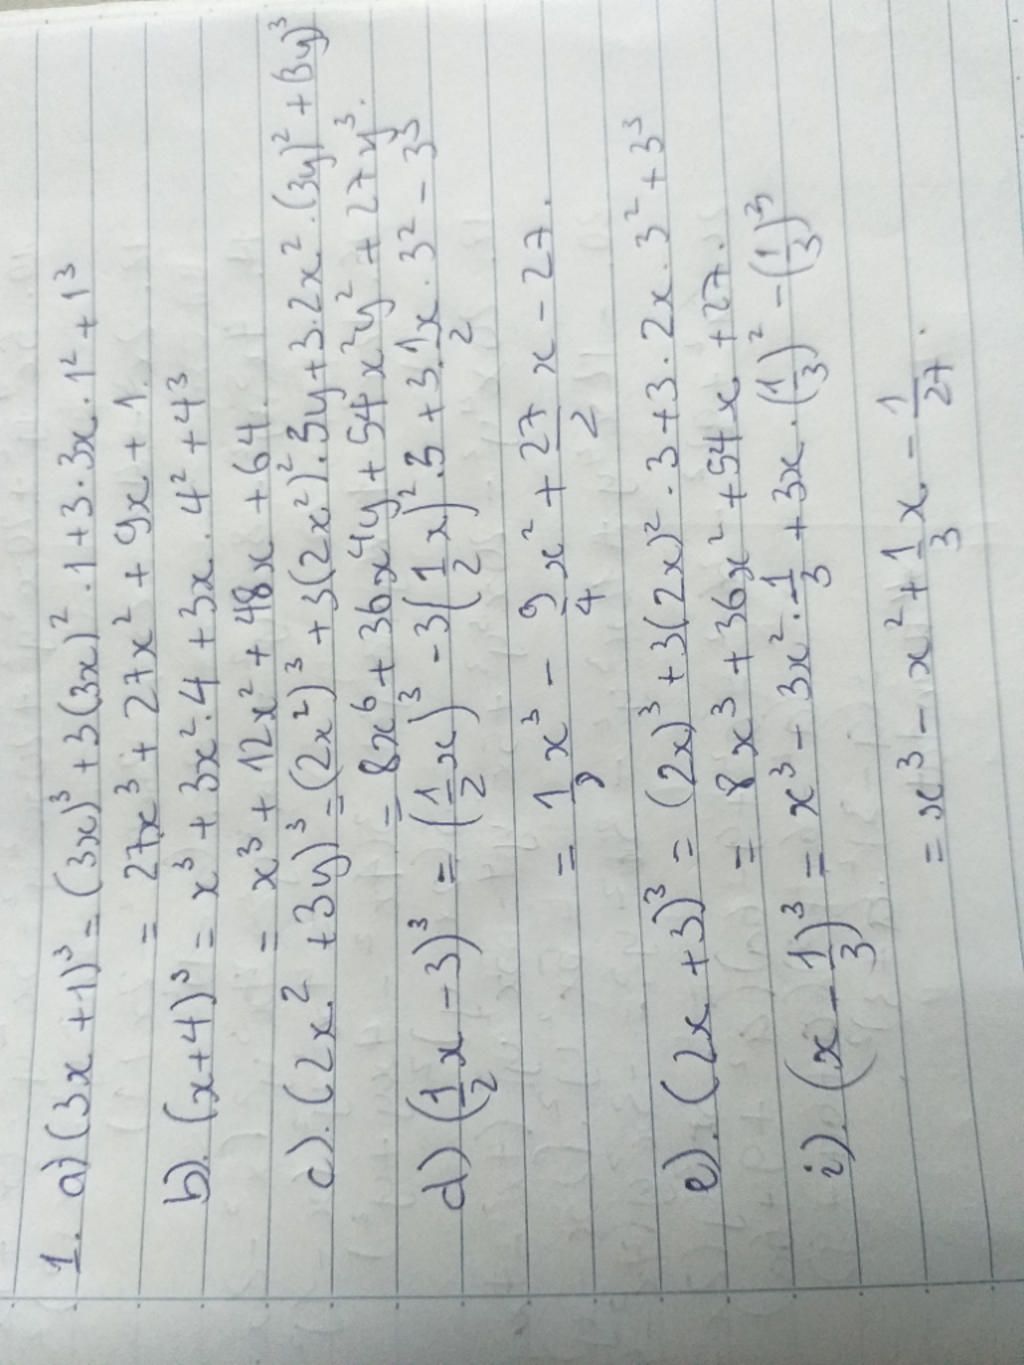 1. a) (3x + 1)³ = (3x)³ + 3(3x)² . 1 + 3 . 3x . 1² + 1³
= 27x³ + 27x² + 9x + 1.
b). (x+4)³ = x³ + 3x² . 4 + 3x . 4² + 4³
= x³ + 12x² + 48x + 64.
c). (2x² + 3y)³ = (2x²)³ + 3(2x²)² . 3y + 3. 2x² . (3y)² + (3y)³
= 8x⁶ + 36x⁴y + 54x²y² + 27y³.
d) (1/2 x - 3)³ = (1/2 x)³ - 3(1/2 x)² . 3 + 3. 1/2 x . 3² - 3³
= x³ - 9/4 x² + 27/2 x - 27.
e). (2x + 3)³ = (2x)³ + 3(2x)² . 3 + 3 . 2x . 3² + 3³
= 8x³ + 36x² + 54x + 27.
i). (x - 1/3)³ = x³ - 3x² . 1/3 + 3x . (1/3)² - (1/3)³
= x³ - x² + 1/3 x - 1/27 .